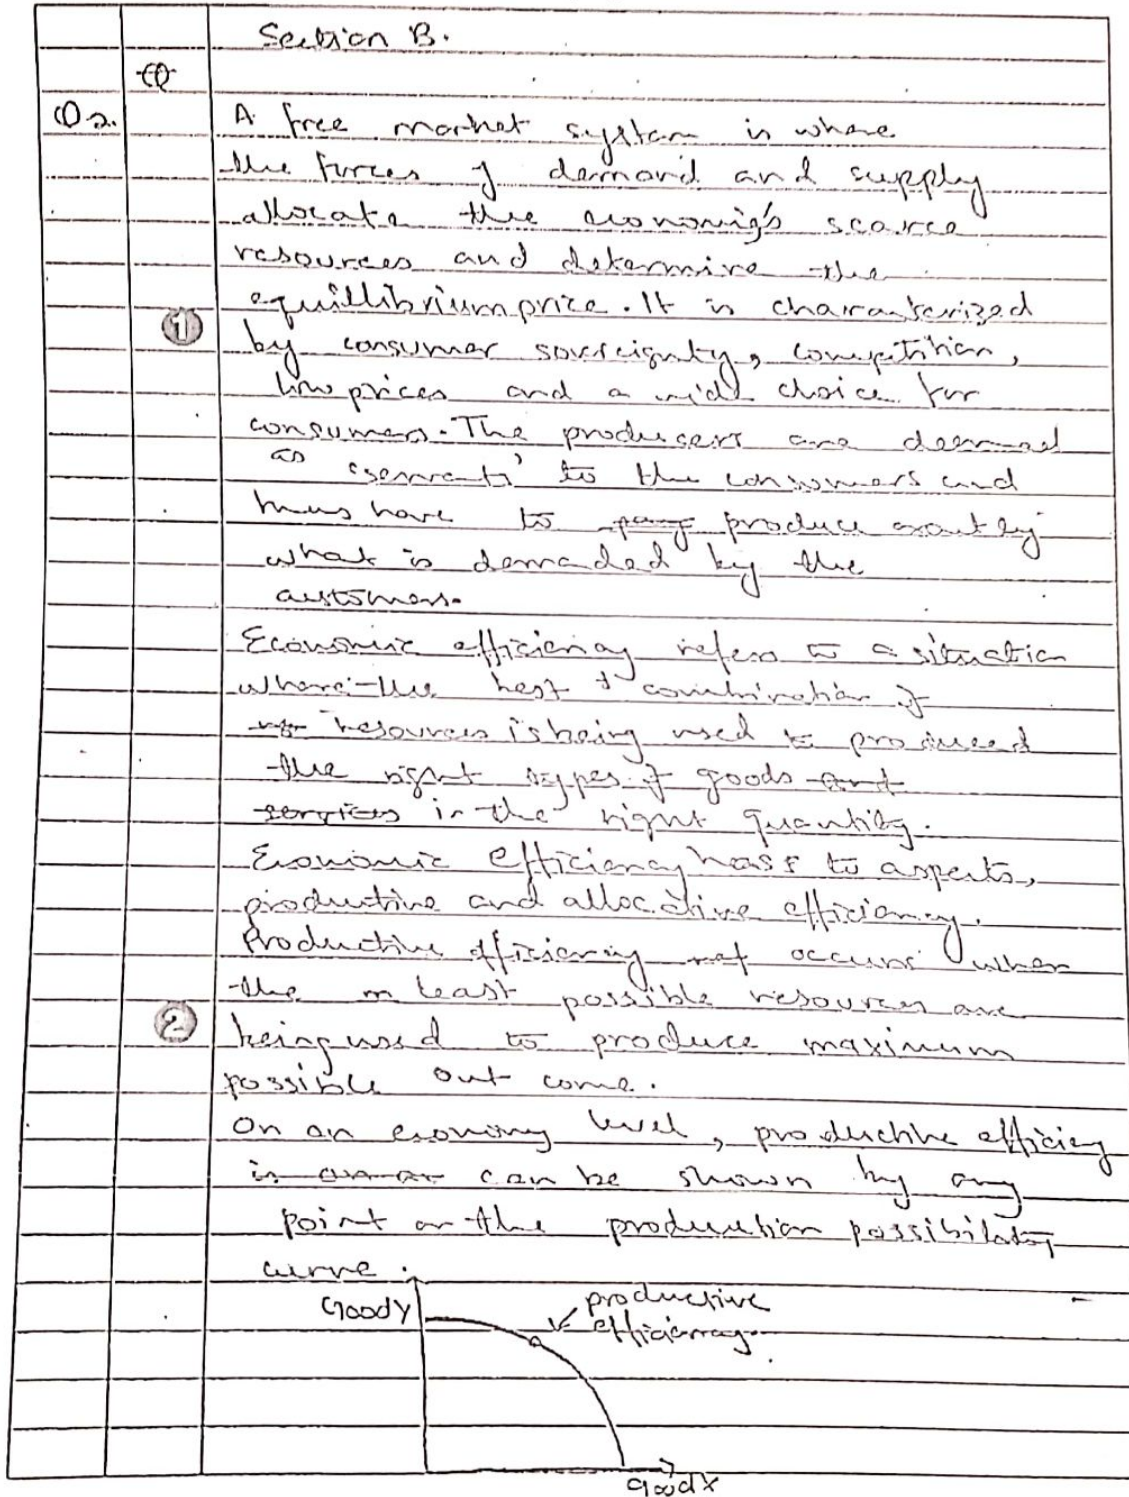 Section B.
Q2.
A free market system is where
the forces of demand and supply
allocate the economy's scarce
resources and determine the
equillibrium price. It is characterized
1
by consumer sovereignty, competition,
low prices and a wide choice for
consumers. The producers are deemed
as 'servants' to the consumers and
thus have to produce exactly
what is demaded by the
customers.
Economic efficiency refers to a situation
where the best combination of
resources is being used to produced
the right types of goods and
services in the right quantity.
Economic efficiency has to aspects,
productive and allocative efficiency.
Productive efficiency occurs when
the least possible resources are
2
being used to produce maximum
possible out come.
On an economy level, productive efficiency
can be shown by any
point on the production possibility
curve.
Good Y
productive
efficiency
Good X